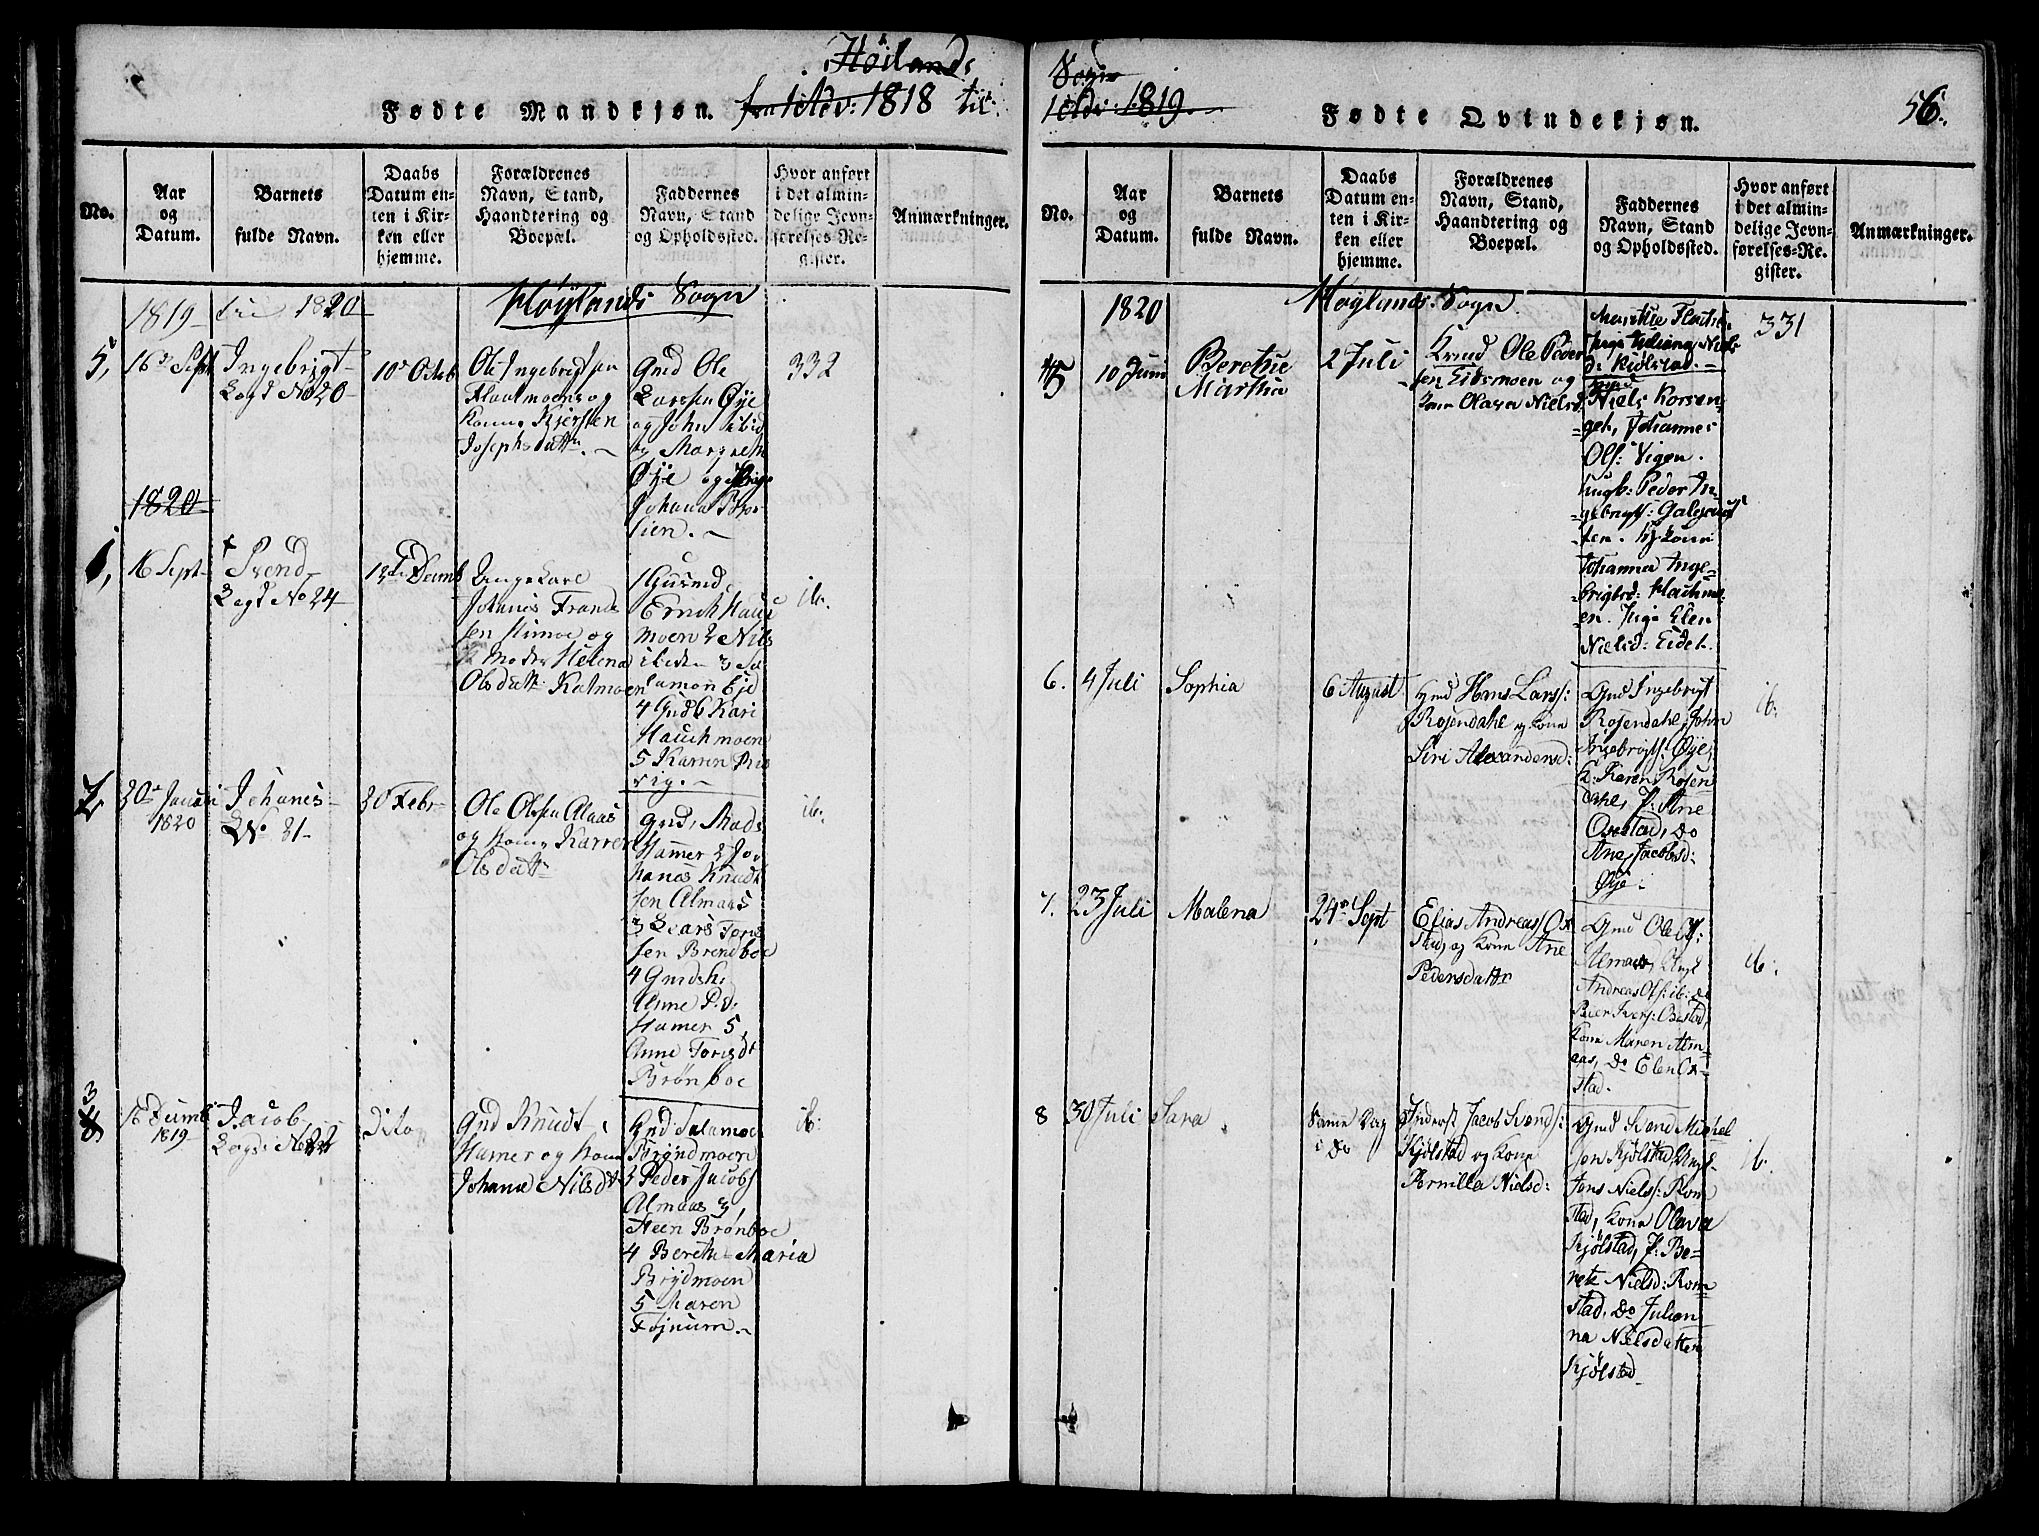 Höilands
Fødte Mandkjøn. fra 1 Adv: 1818 til
No.
Aar
og
Datum.
Barnets
fulde Navn.
Daabs
Datum en-
ten i Kir-
ken eller
hjemme.
Forældrenes
Navn, Stand,
Haandtering og
Boepæl.
Faddernes
Navn, Stand
og Opholdssted.
Hvor anført
i det almin-
delige Jevn-
førelses-Re-
gister.
Anmærkninger.
1819 1820
Høylands Sogn
5,
16de Sept
Ingebrigt
Legd No 20
10de Octob
Ole Ingebrigtsen
og
Kone Kjersten
Josephsdatt.
Gmd Ole
Larssen Øye
og John ibid
og Margreth
Øye og Pige
Johana
lien.
332
1820
1,
16 Sept
Svend
Legd No 24
Decmb
Ungekarl
Johanes Frands
sen og
Moder Helena
Olsdatt Kalmoen
1 Gaarmd
Erich Hauc
moen 2 Nils
ibidn 3 Sa
lamon Eje
4 Gudb Kari
Hauchmoen
5 Karen
vig.
ib.
2
30te Januari
1820
Johanes
L No 21
20 Febr
Ole Olssen Almaas
og Kone Karren
Olsdatt
Gmd, Mads
Hamer 2 Jo,
hanes Knudt
sen Almaas
3 Lars Tore
sen Brendboe
4 Gmdsk.
Anne P.d.
Hamer 5,
Anne Torisdt
Brønboe
ib:
3
16 Decmb
1819
Jacob
Legd: No 22
Dito
Gmd Knudt
Hamer og Kone
Johana Nilsdt
Gmd Salamo
Brøndmoen
2 Peder Jacobs
Almaas 3,
Steen Brønboe
4 Bereth Maria
Brydmoen
5 Maren
Fojnum.
ib:
Sogn
1 Adv: 1819.
Fødte Qvindekjøn.
56.
No.
Aar
og
Datum.
Barnets
fulde Navn.
Daabs
Datum en-
ten i Kir-
ken eller
hjemme.
Forældrenes
Navn, Stand,
Haandtering og
Boepæl.
Faddernes
Navn, Stand
og Opholdssted.
Hvor anført
i det almin-
delige Jevn-
førelses-Re-
gister.
Anmærkninger.
1820
Høylands: Sogn.
5
10 Juni
Berethe
Martha
2 Juli
Ole Peder
sen Eidsmoen og
Kone Olava Nielsd
Marthe
Juliana Niels
d: Kiølstad.
Niels Korsen-
get, Johannes
Ols: Vigen.
Ungk: Peder In-
gebrigts:
ten. Kone
Johanna Inge-
brigtsd: Hauchmo-
en. Pige Elen
Nielsd: Eidet.
331
6.
4 Juli
Sophia
6 August
Gmd Hans Larss:
Rosendahl og Kone
Siri Alexandersd:
Gmd Ingebrigt
Rosendahl, John
Ingebrigts: Øye,
K: Karen Rosen
dahl, P: Ane
Oxestad, Do
Ane, Jacobsd:
Øye.
ib:
7.
23 Juli
Malena
24de Sept
Elias Andreas: Ox
stad, og Kone Ane
Pedersdatter
Gmd Ole O:
Almaas, Ungk
Andreas Ols: ib: do
Peder Ivers: Oxestad,
Kone Maren Alm-
aas, Do Elen Ox-
stad.
ib:
8
30 Juli
Sara
Samme Dag
i Do
Inderst Jacob Svends:
Kjølstad og Kone
Pernilla Nielsd:
Gmd Svend Michel
sen Kjølstad, Ungk
Jens Niels: Rom
stad, Kone Olava
Kjølstad, P: Be-
rete Nielsd: Rom
stad, Do Julian
na Nielsdatter
Kjølstad
ib.